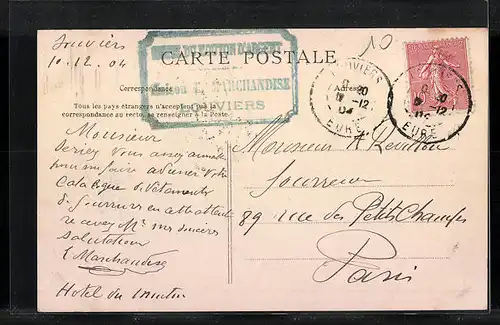 Louviers
10.12.04
CARTE POSTALE
MARCHANDISE
LOUVIERS
10
Correspondance
Adresse
Tous les pays étrangers n'acceptent pas la
correspondance au recto, se renseigner à la Poste.
LOUVIERS
8 20
12
04
EURE
8 20
12
EURE
Monsieur
Seriez Vous assez aimable
pour me faire
Catalogue de Vêtements
de fourrures en attendant
recevez Mr mes sincères
salutations
E Marchandise
Hotel du Mouton
Monsieur A Revillon
Fourreur
89 rue des Petits Champs
Paris